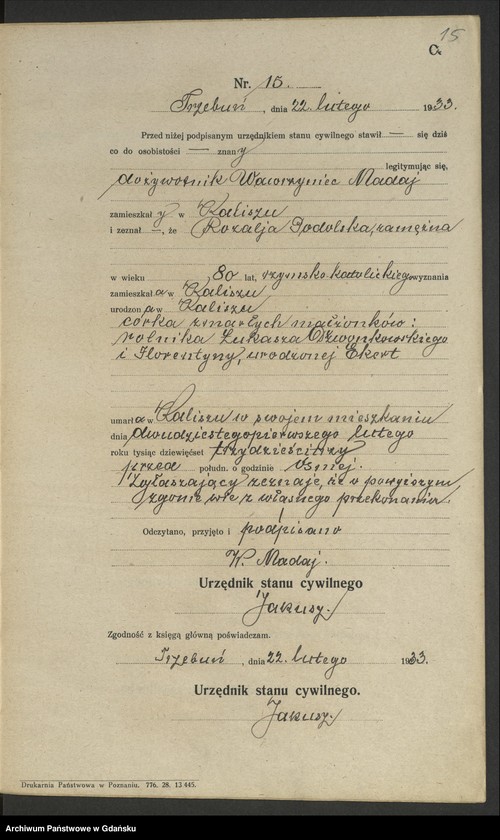 15
C.
Nr. 15.
Trzebuń, dnia 22. lutego 1933.
Przed niżej podpisanym urzędnikiem stanu cywilnego stawił — się dziś
co do osobistości — znany
legitymując się,
dożywotnik Wawrzyniec Madaj
zamieszkały w Kaliszu
i zeznał —, że Rozalja Podolska, zamężna
w wieku 80 lat, rzymsko-katolickiego wyznania
zamieszkała w Kaliszu
urodzona w Kaliszu
córka zmarłych małżonków:
rolnika Łukasza Dzwonkowskiego
i Florentyny, urodzonej Ekert
umarła w Kaliszu w swojem mieszkaniu
dnia dwudziestegopierwszego lutego
roku tysiąc dziewięćset trzydzieścitrzy
przed połudn. o godzinie ósmej.
Zgłaszający zeznaje, że o powyższym
zgonie wie z własnego przekonania.
Odczytano, przyjęto i podpisano
W. Madaj.
Urzędnik stanu cywilnego
Jakusz.
Zgodność z księgą główną poświadczam.
Trzebuń, dnia 22. lutego 1933.
Urzędnik stanu cywilnego.
Jakusz.
Drukarnia Państwowa w Poznaniu. 776. 28. 13 445.
Archiwum Państwowe w Gdańsku